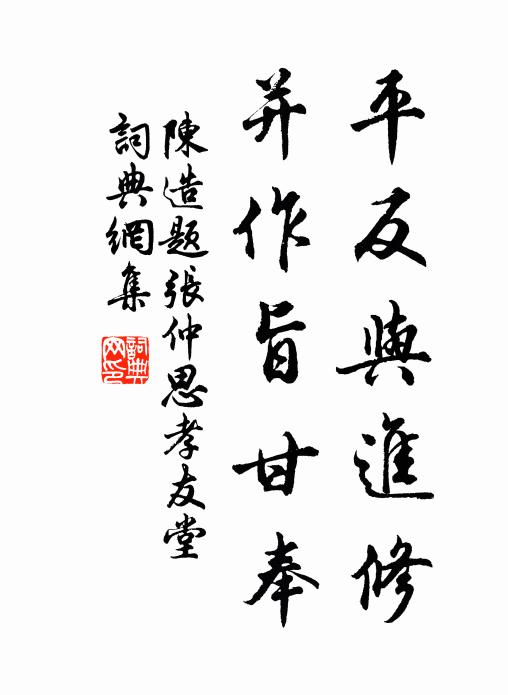 平反與進修
并作旨甘奉
陳造題張仲思孝友堂
詞典網集
詞典網印